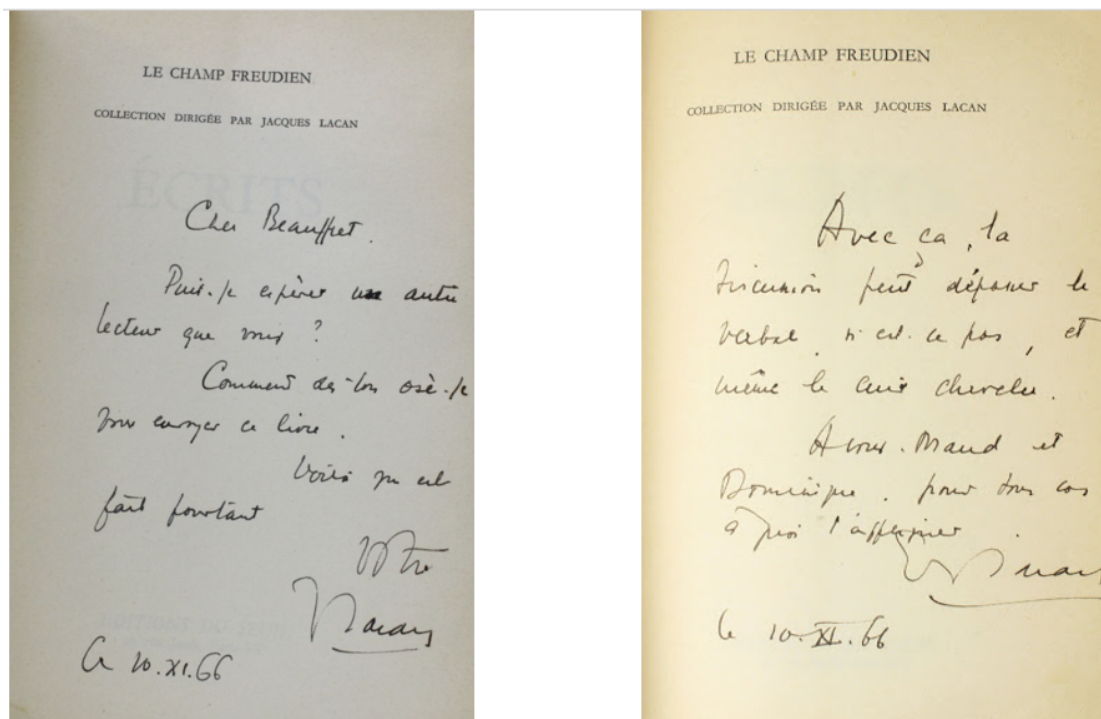 LE CHAMP FREUDIEN
COLLECTION DIRIGÉE PAR JACQUES LACAN
ÉCRITS
Cher Beauffret.
Puis-je espérer un autre
lecteur que vous ?
Comment dès-lors osè-je
vous envoyer ce livre.
Voilà qui est
fait pourtant
Votre
JLacan
Ce 10.XI.66
LE CHAMP FREUDIEN
COLLECTION DIRIGÉE PAR JACQUES LACAN
Avec ça, la
discussion peut déposer le
verbal, n'est-ce pas, et
même le cuir chevelu.
A vous. Maud et
Dominique. pour tous cas
à quoi l'appliquer.
Le 10.XI.66